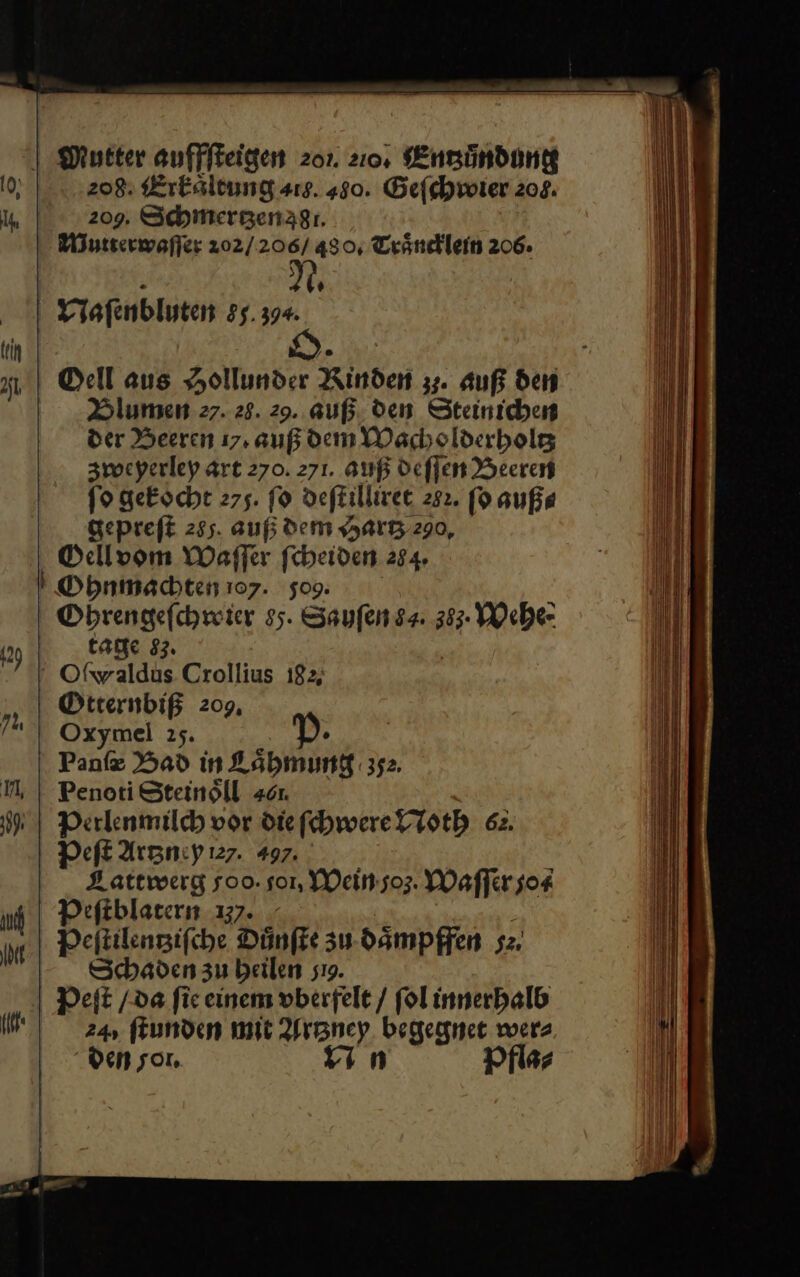 Mutter auffſteigen 201. 210. Entzůndung
208. Erkåltung 418. 480. Geſchwier 208.
209. Schmertzen 381.
Mutterwaſſer 202/ 206/ 480. Tråncklein 206.
N.
Naſenbluten 85. 394.
O.
Oell aus Hollunder Rinden 35. auß den
Blumen 27. 28. 29. auß den Steinichen
der Beeren 17. auß dem Wacholderholtz
zweyerley art 270. 271. auß deſſen Beeren
ſo gekocht 275. ſo deſtilliret 282. ſo auß⸗
gepreſt 285. auß dem Hartz 290,
Oell vom Waſſer ſcheiden 284.
Ohnmachten 107. 509.
Ohrengeſchwier 85. Sauſen 84. 383. Wehe⸗
tage 83.
Oſwaldus Crollius 182,
Otternbiß 209.
Oxymel 25.
P.
Panſæ Bad in Låhmung 352.
Penoti Steinöll 461.
Perlenmilch vor die ſchwere Noth 62.
Peſt Artzney 127. 497.
Lattwerg 500. 501, Wein 503. Waſſer 504
Peſtblatern 137.
Peſtilentziſche Důnſte zu dåmpffen 52.
Schaden zu heilen 519.
Peſt / da ſie einem vberfelt / ſol innerhalb
24, ſtunden mit Artzney begegnet wer⸗
den 501.
N n
Pfla⸗